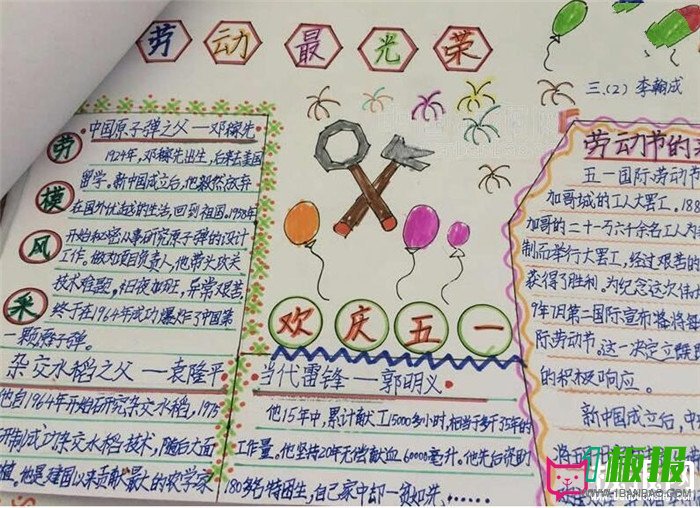 劳动最光荣
三.(2) 李翰成
劳模风采
中国原子弹之父—邓稼先
1924年,邓稼先出生,后来去美国
留学。新中国成立后,他毅然放弃
在国外优越的生活,回到祖国。1958年
开始秘密从事研究原子弹的设计
工作。做为项目负责人,他带头攻关
技术难题,日夜加班,异常艰苦
终于在1964年成功爆炸了中国第
一颗原子弹。
杂交水稻之父—袁隆平
他自1964年开始研究杂交水稻,1975
研制成功杂交水稻技术,随后大面
植,他是建国以来贡献最大的农学家
欢庆五一
当代雷锋—郭明义
他15年中,累计献工15000多小时,相当于多干35年的
工作量。他坚持20年无偿献血60000毫升。他先后资助
180多名特困生,自己家中却一贫如洗,……
劳动节的
五一国际劳动节
加哥城的工人大罢工,188
加哥的二十一万六千余名工人为
制而举行大罢工,经过艰苦的
获得了胜利。为纪念这次伟
9年7月第二国际宣布将每
际劳动节。这一决定立
的积极响应。
新中国成立后,中
板报